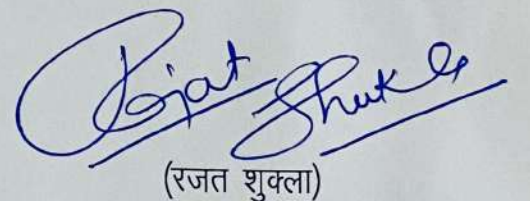 Rajat Shukla
(रजत शुक्ला)